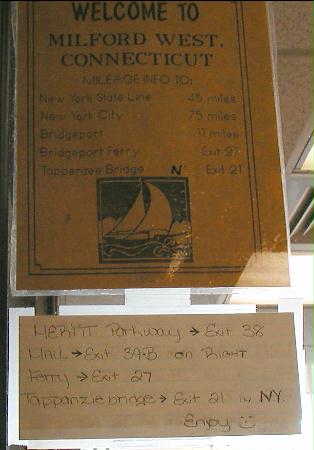 WELCOME TO
MILFORD WEST,
CONNECTICUT
MILEAGE INFO TO:
New York State Line 45 miles
New York City 75 miles
Bridgeport 11 miles
Bridgeport Ferry Exit 27
Tappenzee Bridge N Exit 21
MERITT Parkway → Exit 38
MALL → Exit 39·B on Right
Ferry → Exit 27
Tappanzie bridge → Exit 21 in NY.
Enjoy